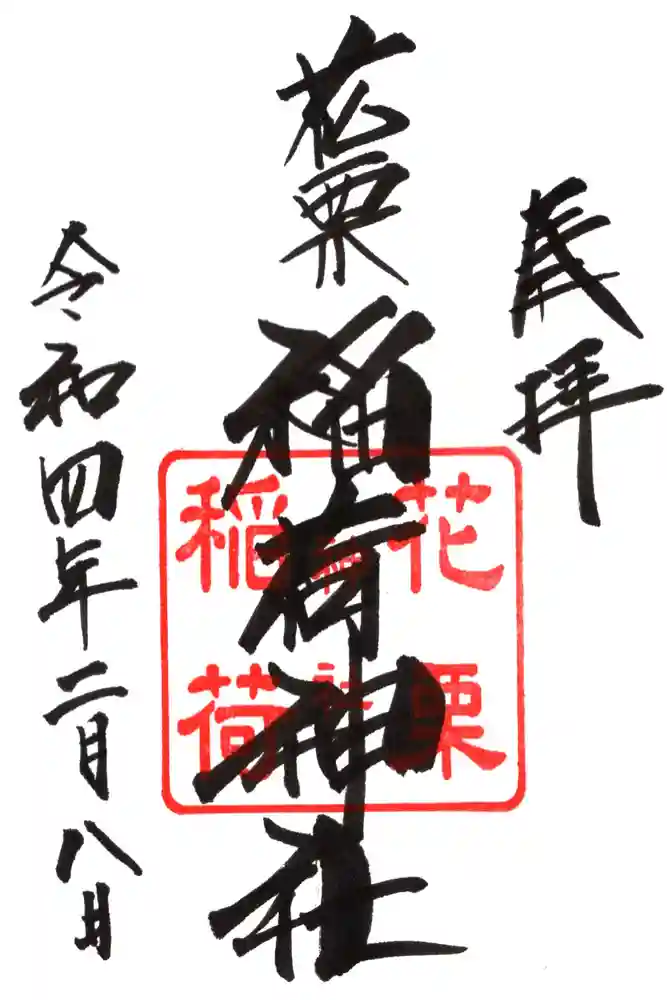 奉拝
花栗稲荷神社
花栗
神社
稲荷
令和四年二月八日